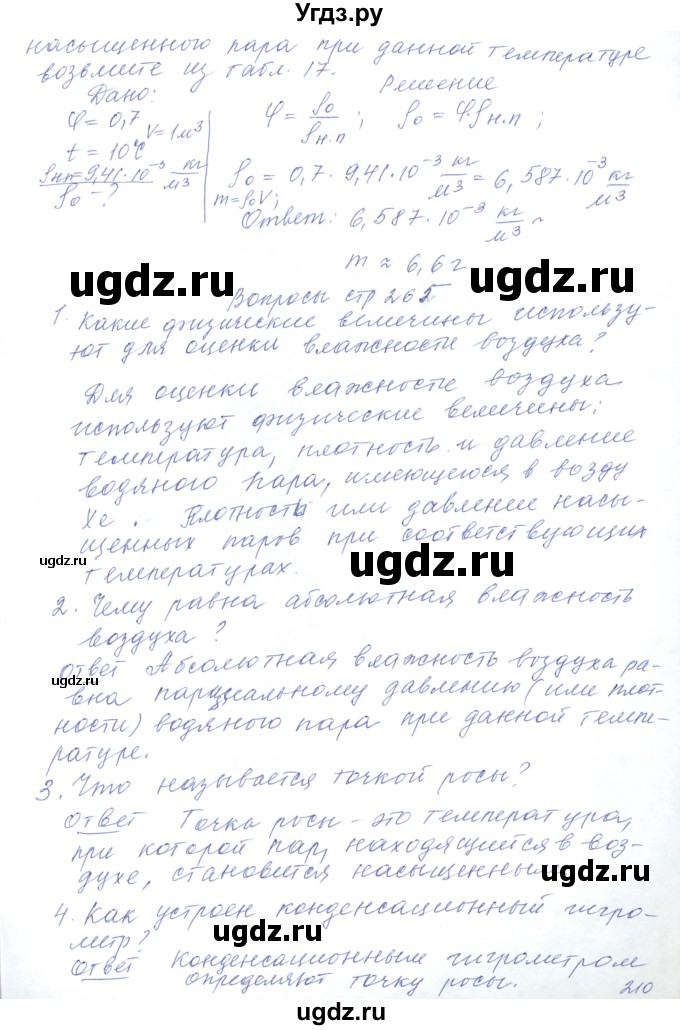 Угдз.ру
насыщенного пара при данной температуре
возьмите из табл. 17.
Дано: Решение
φ = 0,7
V = 1м³
t = 10°C
ρнп = 9,41·10⁻³ кг/м³
ρ₀ - ?
φ = ρ₀/ρн.п ; ρ₀ = φ·ρн.п ;
ρ₀ = 0,7 · 9,41·10⁻³ кг/м³ = 6,587·10⁻³ кг/м³
m = ρ₀V;
Ответ: 6,587·10⁻³ кг/м³
m ≈ 6,6 г
ugdz.ru ugdz.ru
Вопросы стр 265
1. Какие физические величины использу-
ют для оценки влажности воздуха?
Для оценки влажности воздуха
используют физические величины:
температура, плотность и давление
водяного пара, имеющегося в возду
хе. Плотность или давление насы-
щенных паров при соответствующих
температурах.
ugdz.ru ugdz.ru
2. Чему равна абсолютная влажность
воздуха?
Ответ Абсолютная влажность воздуха ра-
вна парциальному давлению (или плот-
ности) водяного пара при данной темпе-
ратуре.
ugdz.ru
3. Что называется точкой росы?
Ответ Точка росы - это температура,
при которой пар, находящийся в воз-
духе, становится насыщенным.
ugdz.ru
ugdz.ru
4. Как устроен конденсационный гигро-
метр?
Ответ Конденсационным гигрометром
определяют точку росы.
210
ugdz.ru